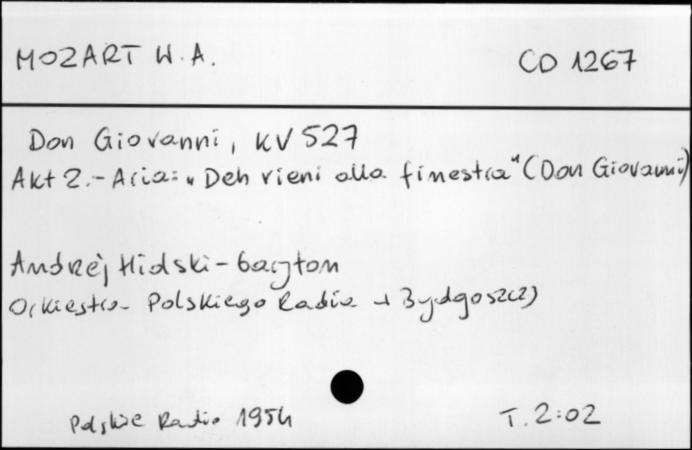 MOZART W.A.
CD 1267
Don Giovanni, KV 527
Akt 2.- Aria: „Deh vieni alla finestra" (Don Giovanni)
Andrzej Hiolski - baryton
Orkiestra Polskiego Radia w Bydgoszczy
Polskie Radio 1954
T. 2:02